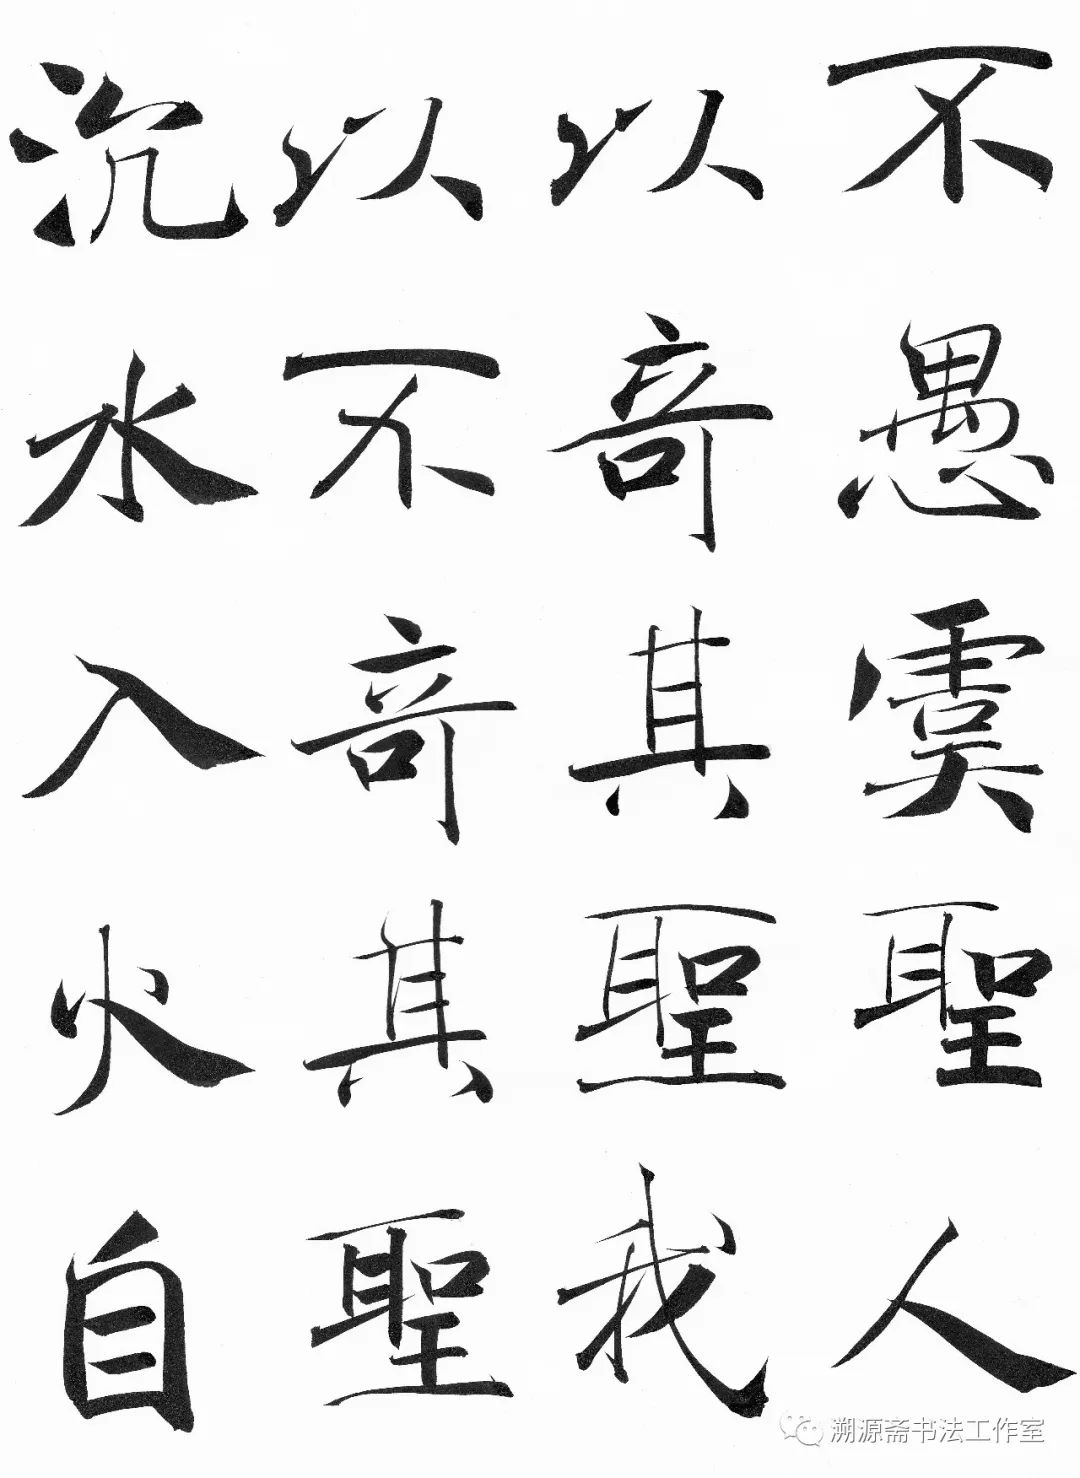 不愚虞聖人
以竒其聖我
以不竒其聖
沉水入火自
溯源斋书法工作室